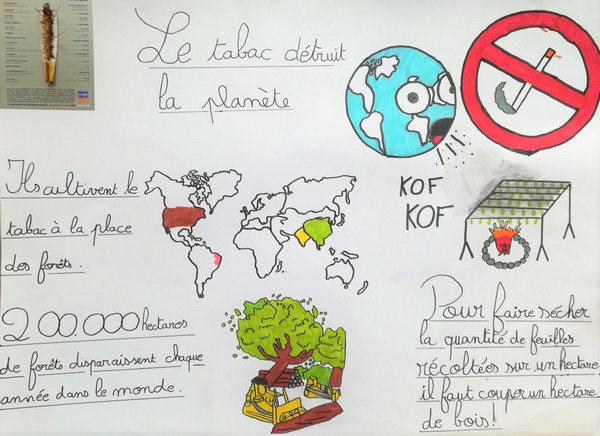 Le tabac détruit
la planète
Ils cultivent le
tabac à la place
des forêts.
KOF
KOF
200000 hectares
de forêts disparaissent chaque
année dans le monde.
Pour faire sécher
la quantité de feuilles
récoltées sur un hectare
il faut couper un hectare
de bois!